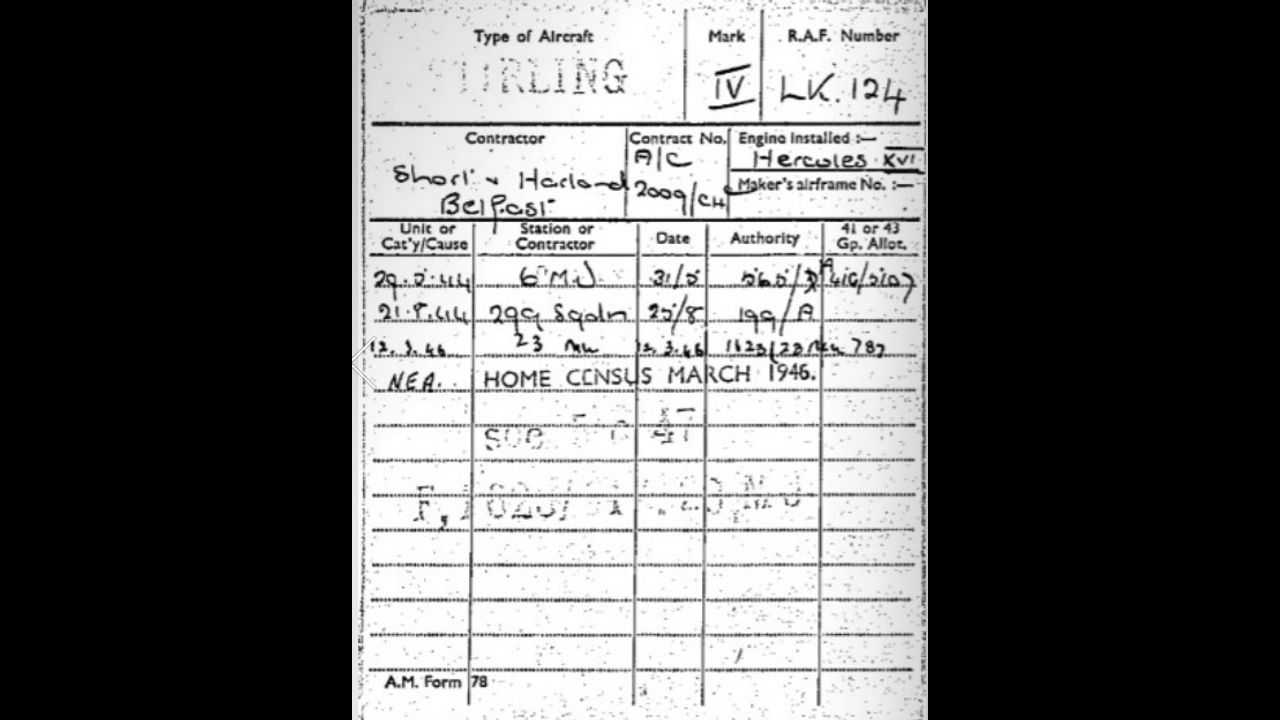 Type of Aircraft Mark R.A.F. Number
STIRLING IV LK.124
Contractor Contract No. Engine installed :—
A/C Hercules XVI
Short & Harland 2009/CH Maker's airframe No. :—
Belfast
Unit or Cat'y/Cause Station or Contractor Date Authority 41 or 43 Gp. Allot.
29.5.44 6 M.U 31/5 565/
21.8.44 299 Sqdn 25/8 199/A
12.3.46 23 Mu 12.3.46 1623/23 Mu 787
NEA. HOME CENSUS MARCH 1946.
SOC 47
A.M. Form 78